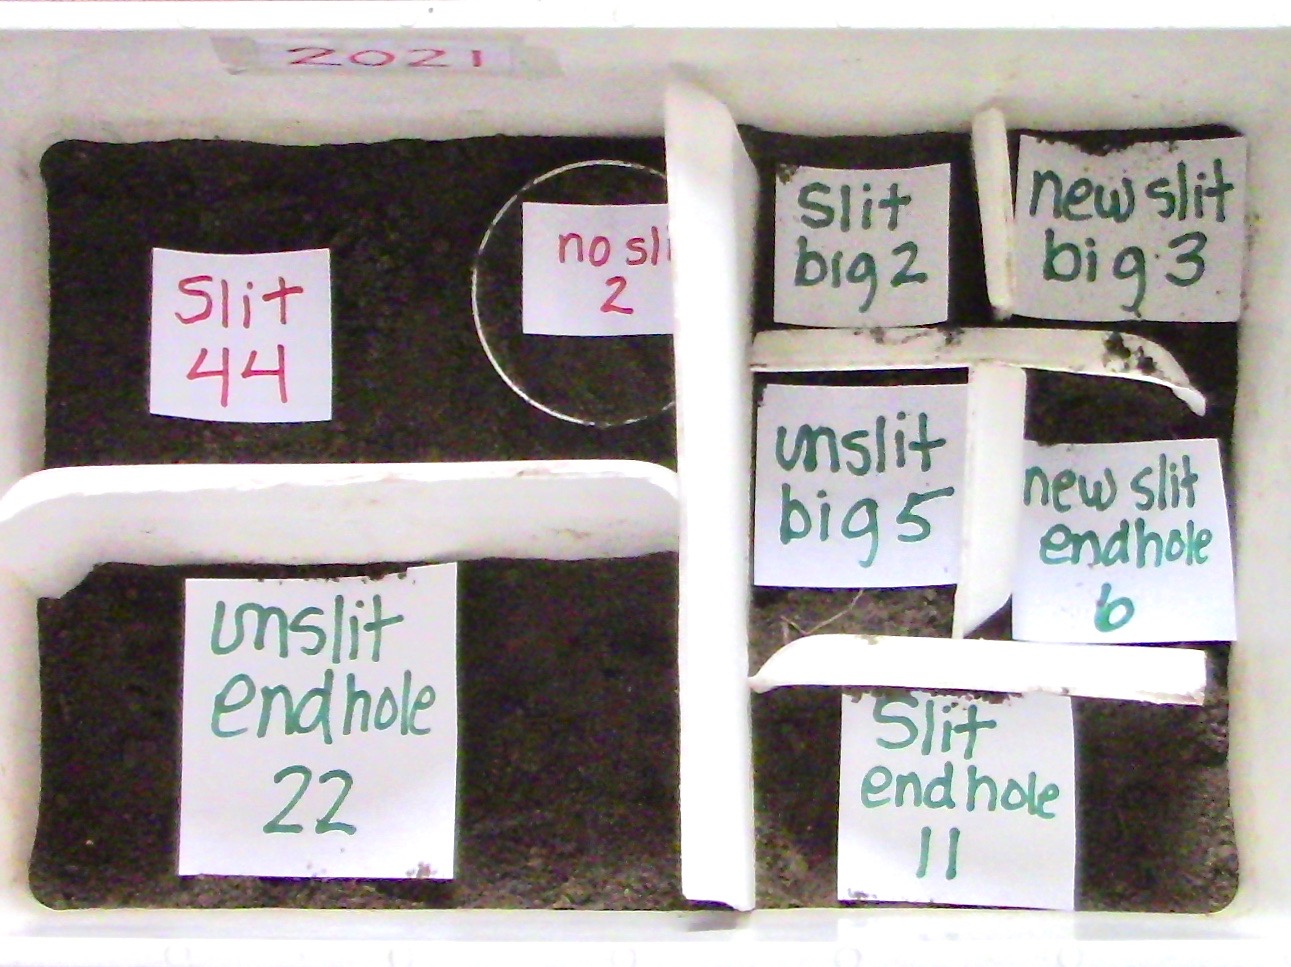 2021
Slit
44
no sli
2
Slit
big 2
new slit
big 3
unslit
big 5
new slit
endhole
6
unslit
endhole
22
Slit
endhole
11